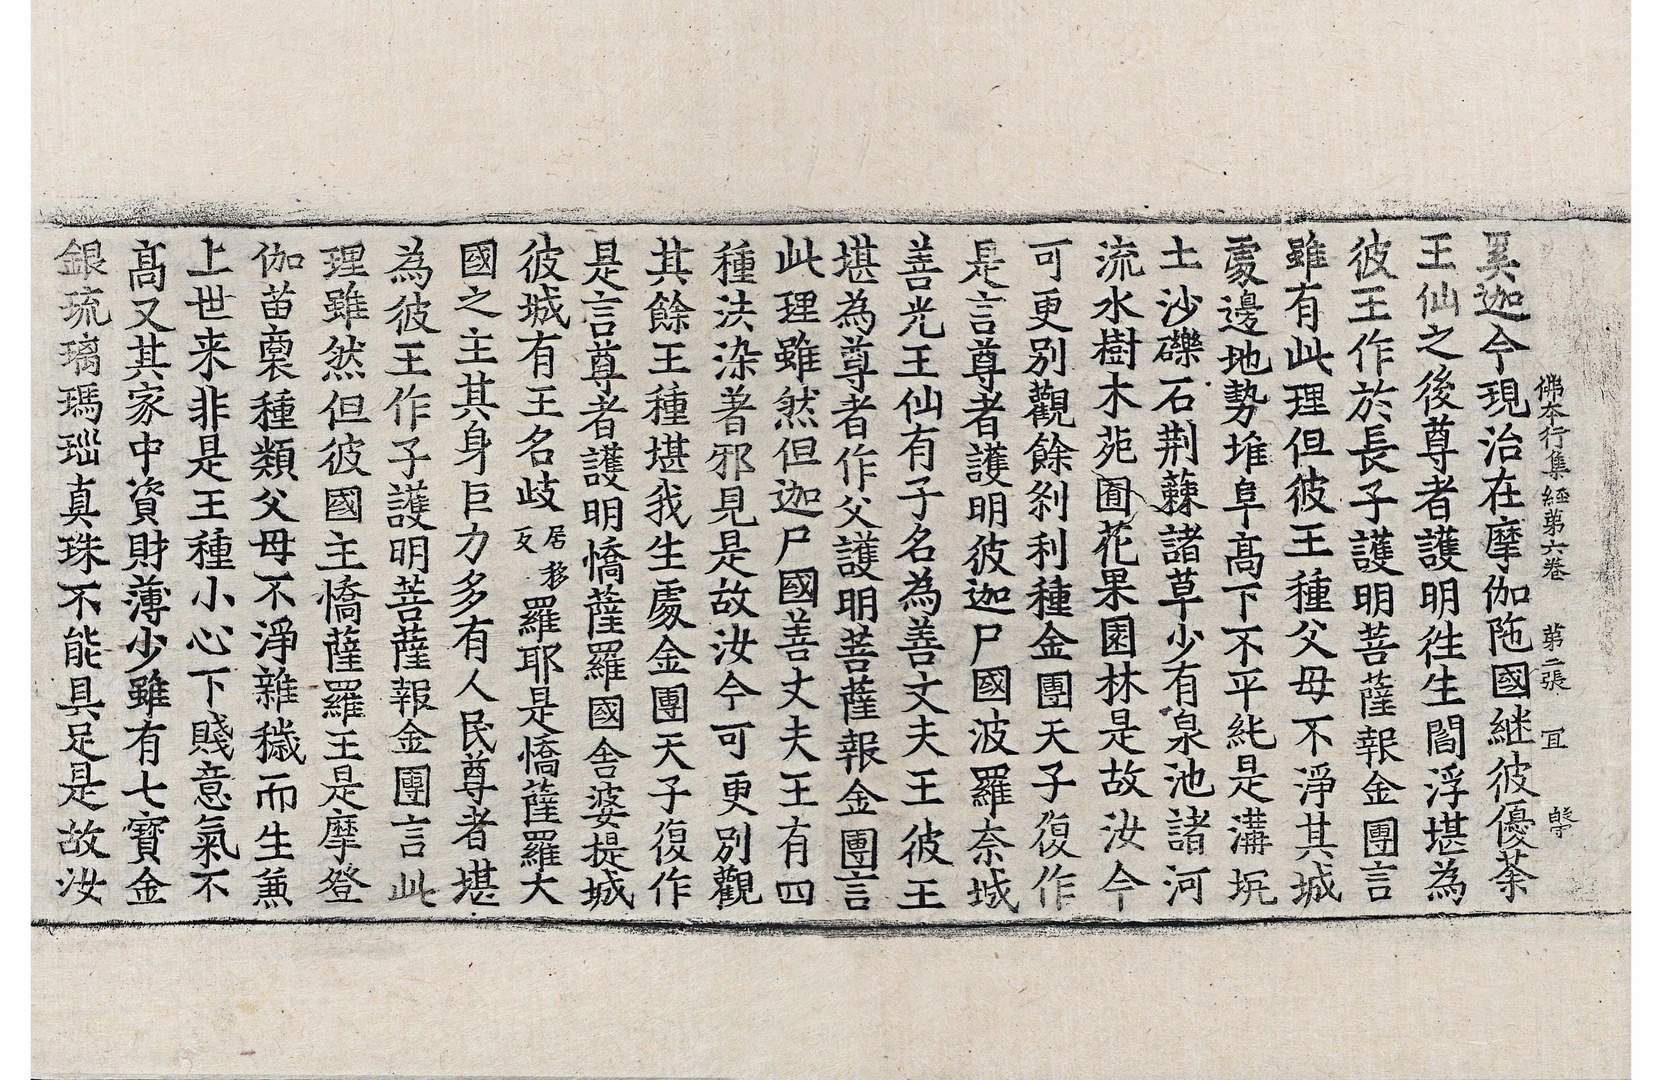 佛本行集經第六卷 第二張 冝
奚迦今現治在摩伽陁國継彼優荼
王仙之後尊者護明徃生閻浮堪為
彼王作於長子護明菩薩報金團言
雖有此理但彼王種父母不淨其城
處邊地勢堆阜高下不平純是溝坑
土沙礫石荆蕀諸草少有泉池諸河
流水樹木苑囿花果園林是故汝今
可更別觀餘剎利種金團天子復作
是言尊者護明彼迦尸國波羅奈城
善光王仙有子名為善丈夫王彼王
堪為尊者作父護明菩薩報金團言
此理雖然但迦尸國善丈夫王有四
種法染著邪見是故汝今可更別觀
其餘王種堪我生處金團天子復作
是言尊者護明憍薩羅國舍婆提城
彼城有王名歧居移反羅耶是憍薩羅大
國之主其身巨力多有人民尊者堪
為彼王作子護明菩薩報金團言此
理雖然但彼國主憍薩羅王是摩登
伽苗裔種類父母不淨雜穢而生兼
上世来非是王種小心下賤意氣不
高又其家中資財薄少雖有七寶金
銀琉璃瑪瑙真珠不能具足是故汝